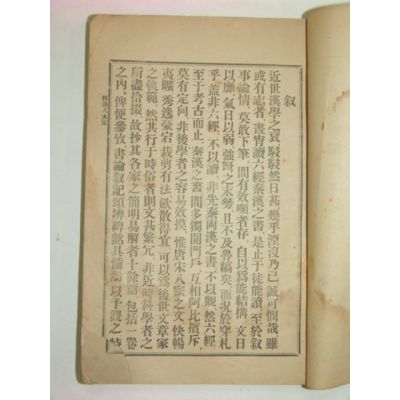 叙
近世漢學之衰駸駸然日甚幾乎湮沒乃已誠可憫哉雖
或有志者書皆讀六經秦漢之書是止于徒能讀至於叙
事論情莫敢下筆間有效嚬者存自以爲能結搆文日
以靡氣日以弱強弩之末勢且不及魯縞矣而況於穿札
乎蓋非六經不以讀非先秦兩漢之書不以觀然六經
至于考古而止秦漢之書間多獨開門戶互相阿比擯斥
莫有定向非後學者之容易效摸惟唐宋八家之文快暢
夷曠秀逸豪宕裁剪有法斂散得宜可以爲後世文章家
之軌範然其行于時俗者則文甚繁冗非近時科學者之
所盡拾掇故抄其各家之簡明易解者十餘篇包括一卷
之內俾便參攷書論叙記頌碑銘具備焉以千觀之